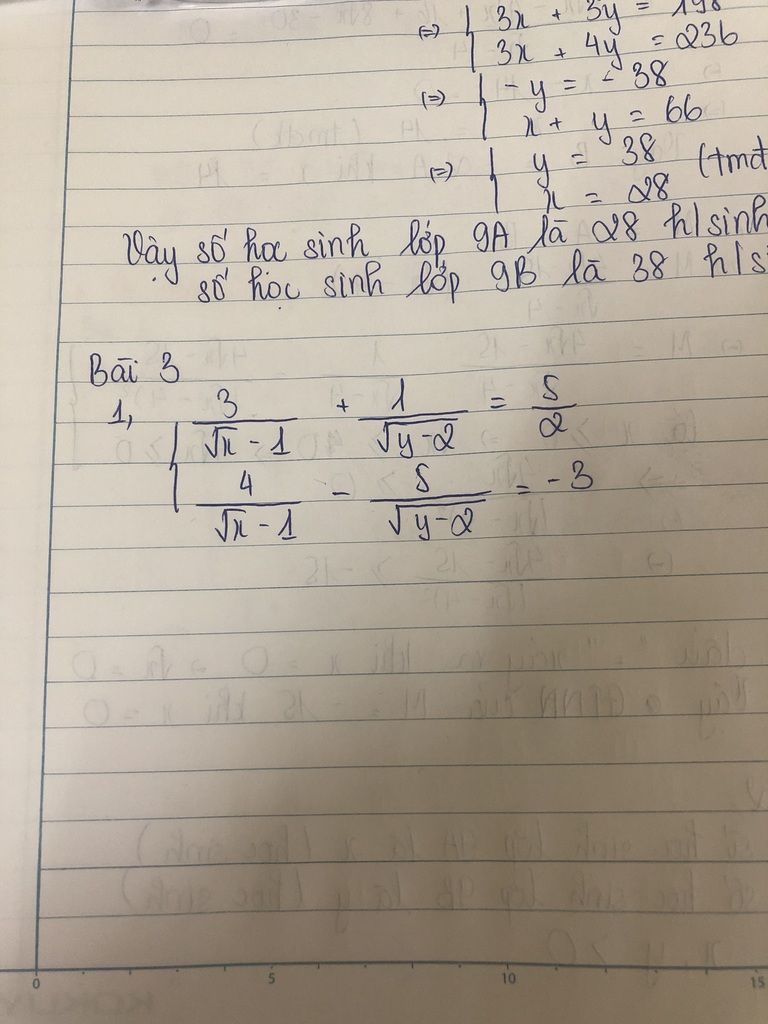 (=) { 3x + 3y = 198
3x + 4y = 236
(=) { - y = - 38
x + y = 66
(=) { y = 38 (tmđ
x = 28
Vậy số học sinh lớp 9A là 28 h/sinh
số học sinh lớp 9B là 38 h/s
Bài 3
1, { 3/(√x - 1) + 1/(√y-2) = 5/2
4/(√x - 1) - 5/(√y-2) = - 3
0 5 10 15